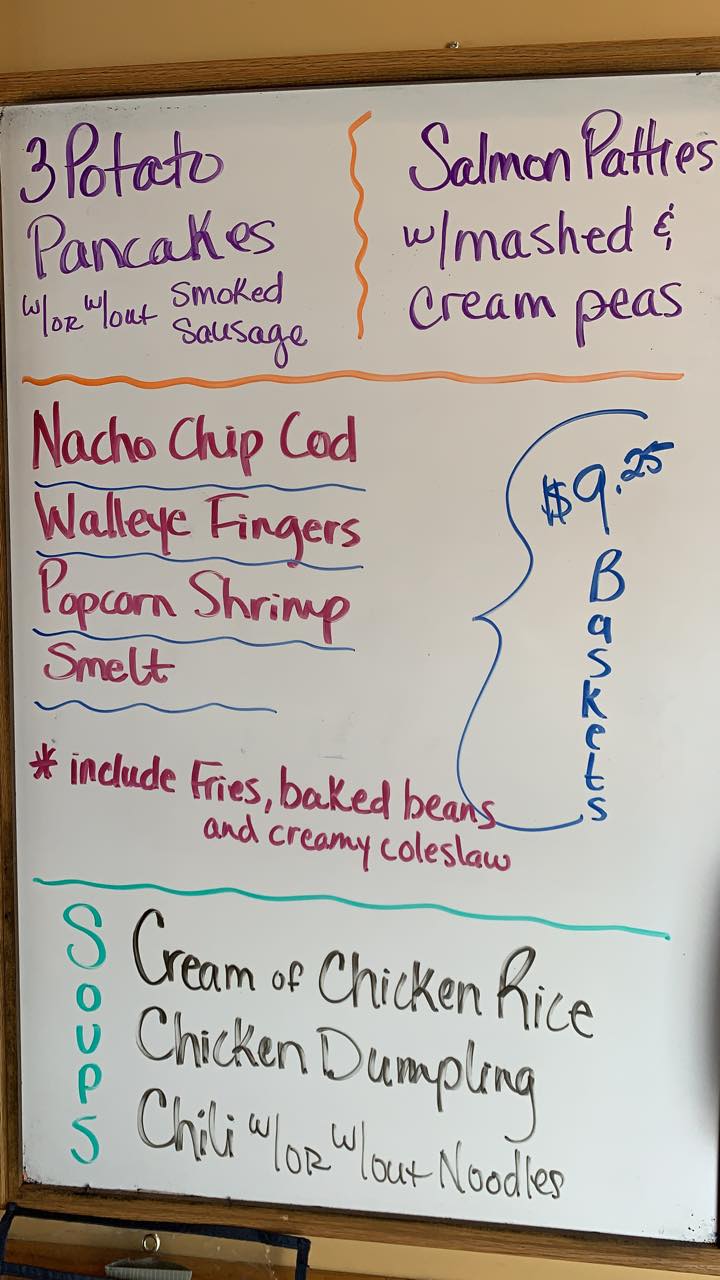 3 Potato
Pancakes
w/or w/out Smoked
Sausage
Salmon Patties
w/mashed &
Cream peas
Nacho Chip Cod
Walleye Fingers
Popcorn Shrimp
Smelt
$9.25
Baskets
* include Fries, baked beans
and creamy coleslaw
Soups
Cream of Chicken Rice
Chicken Dumpling
Chili w/or w/out Noodles